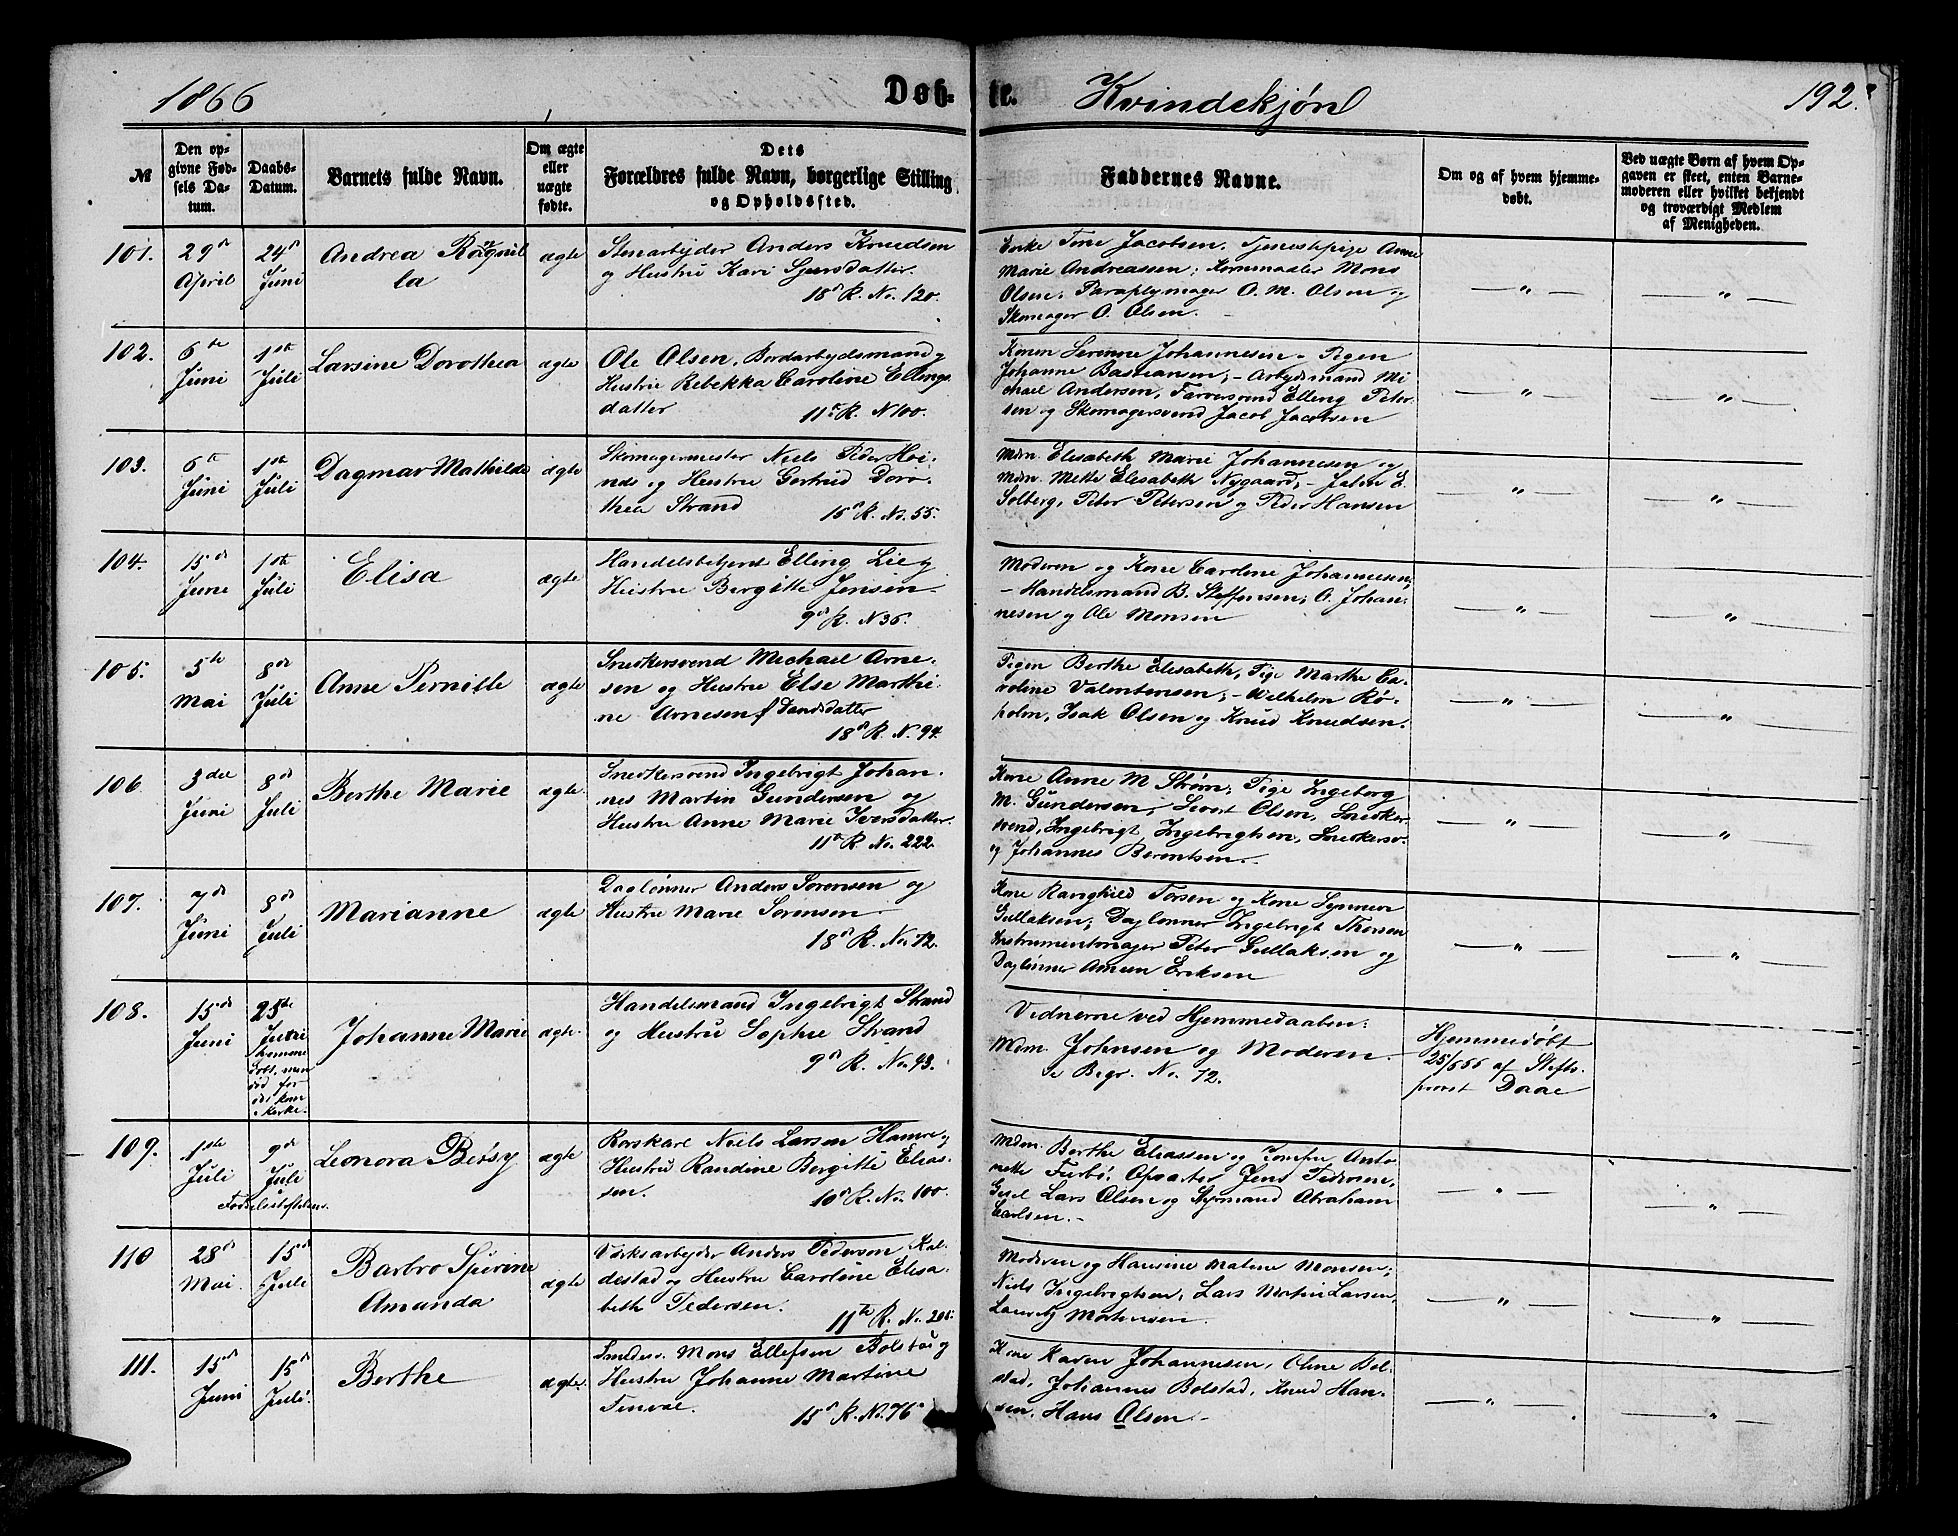 1866
Døb-
te.
Kvindekjøn
192.
№
Den op-
givne Fød-
sels Da-
tum.
Daabs-
Datum.
Barnets fulde Navn.
Om ægte
eller
uægte
fødte.
Dets
Forældres fulde Navn, borgerlige Stilling
og Opholdssted.
Faddernes Navne.
Om og af hvem hjemme-
døbt.
Ved uægte Børn af hvem Op-
gaven er skeet, enten Barne-
moderen eller hvilket bekjendt
og troværdigt Medlem
af Menigheden.
101.
29de
April
24de
Juni
Andrea Ragnil
la
ægte
Stenarbejder Anders Knudsen
og Hustru Kari Sjursdatter.
18de R. No. 120.
Enke Tone Jacobsen. Tjenestepige Anne
Marie Andreassen; Kornmaaler Mons
Olsen; Paraplymager O. M. Olsen og
Skomager O. Olsen.
102.
6te
Juni
1ste
Juli
Larsine Dorothea
ægte
Ole Olsen, Bordarbydsmand og
Hustru Rebekka Caroline Ellings
datter
11te R. N 100.
Konen Serenne Johannesen - Pigen
Johanne Bastiansen; - Arbydsmand Mi
chael Andersen, Farversvend Elling Peter-
sen og Skomagersvend Jacob Jacobsen
103.
6te
Juni
1ste
Juli
Dagmar Mathilde
ægte
Skomagermester Niels Peder Hei-
nds og Hustru Gertrud Doro-
thea Strand
15de R. No. 55.
Mdm. Elisabeth Marie Johannesen og
Mdm. Mette Elisabeth Nygaard; - John E.
Solberg, Peter Petersen og Peder Hansen
104.
15de
June
1ste
Juli
Elisa
ægte
Handelsbetjent Elling Lie og
Hustru Bergitte Jensen.
9de R. N 36.
Moderen og Kone Caroline Johannesen;
- Handelsmand B. Steffensen; O. Johan-
nesen og Ole Monsen
105.
5te
Mai
8de
Juli
Anne Pernille
ægte
Snedkersvend Michael Arne-
sen og Hustru Else Marthi-
ne Arnesen f. Davidsdatter
18de R. No. 94.
Pigen Berthe Elisabeth, Pige Marthe Ca-
roline Valentinsen; - Wilhelm Rø-
holm, Isak Olsen og Knud Knudsen.
106
3die
Juni
8de
Juli
Berthe Marie
ægte
Snedkersvend Ingebrigt Johan-
nes Martin Gundersen og
Hustru Anne Marie Iversdatter.
11te R. No. 222.
Kone Anne M Strøm; Pige Ingeborg
M. Gundersen, Sivert Olsen, Snedker-
svend, Ingebrigt Ingebrigtsen, Snedkersv.
og Johannes Berentsen.
107.
7de
Juni
8de
Juli
Marianne
ægte
Daglønner Anders Sørensen og
Hustru Marie Sørensen
18de R. No. 72.
Kone Ranghild Torsen og Kone Synneve
Gullaksen; Daglønner Ingebrigt Thorsen
Instrumentmager Peter Gullaksen og
Daglønner Amun Eriksen
108.
15de
Juni
25te
Johanne Marie
ægte.
Handelsmand Ingebrigt Strand
og Hustru Sophie Strand
9de R. No. 93.
Vidnerne ved Hjemmedaaben:
Mdm. Johnsen og Moderen.
se Begr. No. 72.
Hjemmedøbt
25/6 66 af Stifts-
provst Daae
109.
1ste
Juli
9de
Juli
Fødselsstiftelsen.
Leonora Betsy
ægte
Rorskarl Niels Larsen Hamre og
Hustru Randine Bergitte Elias-
sen.
10de R. No. 100.
Mdm. Berthe Eliassen og Jomfru Anto
nette Furbø; Opvarter Jens Pedersen,
Gsel Lars Olsen og Styrmand Abraham
Carlsen. -
110
28de
Mai.
15de
Juli
Barbro Sjurine
Amanda
ægte
Værksarbejder Anders Pedersen Kal-
destad og Hustru Caroline Elisa-
beth Pedersen.
11te R. No. 205.
Moderen og Hansine Matine Monsen;
Niels Ingebrigtsen, Lars Martin Larsen,
Lauritz Mortensen.
111.
15de
Juni
15de
Juli.
Berthe
ægte
Smedesv. Mons Ellefsen Bolstad og
Hustru Johanne Martine
Tinvol.
15de R. No. 76
Kone Karen Johannesen, Oline Bol-
stad, Johannes Bolstad, Knud Han-
sen, Hans Olsen -